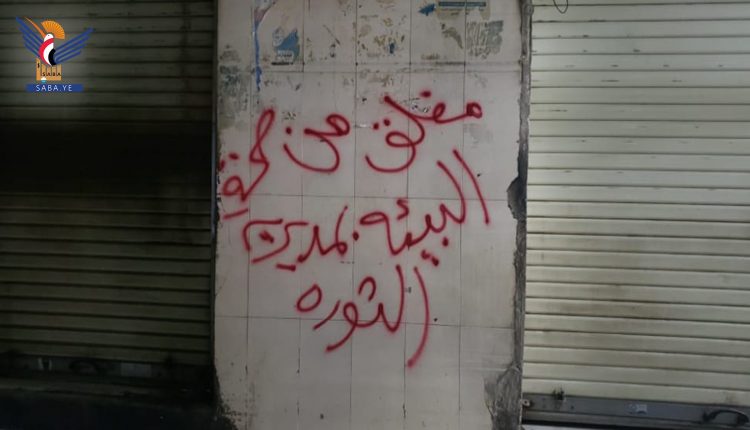 SABA
SABA.YE
مغلق من قبل
البيئه بمديرية
الثوره